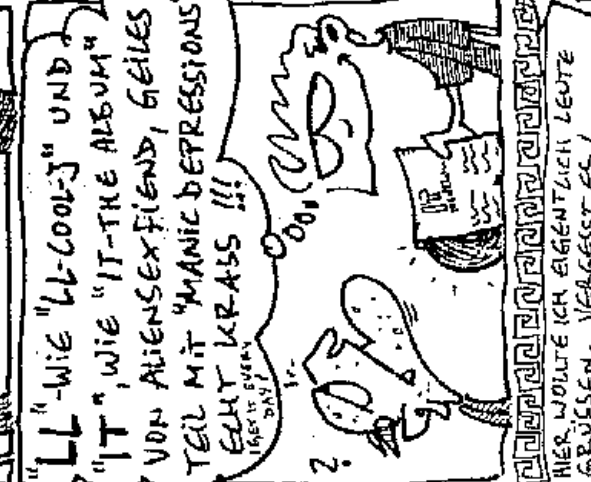 "LL"-WIE "LL-COOL-J" UND
"IT", WIE "IT-THE ALBUM"
VON ALIENSEXFIEND, GEILES
TEIL MIT "MANIC DEPRESSIONS"
ECHT KRASS !!!
I GET IT EVERY
DAY!
?
HIER WOLLTE ICH EIGENTLICH LEUTE
GRÜSSEN. VERGESST ES!